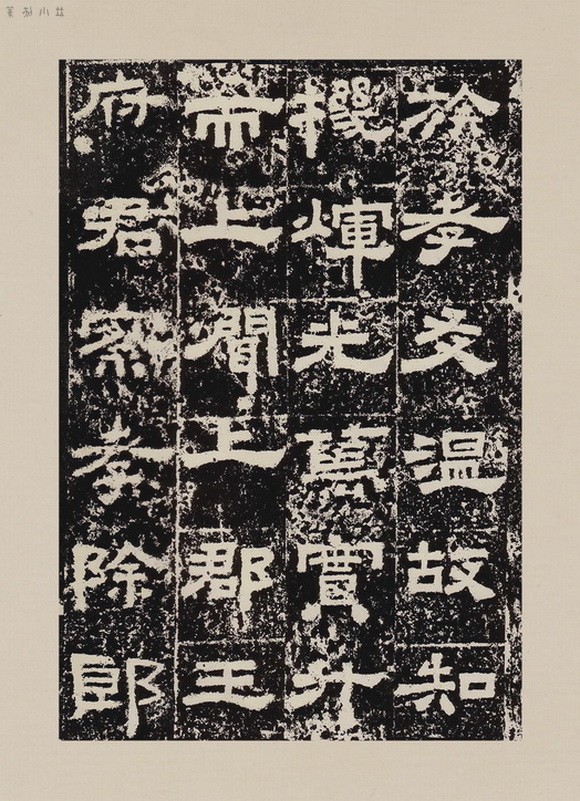 篆刻小站
於孝友温故知
機煇光篤實升
而上聞上郡王
府君察孝除郎